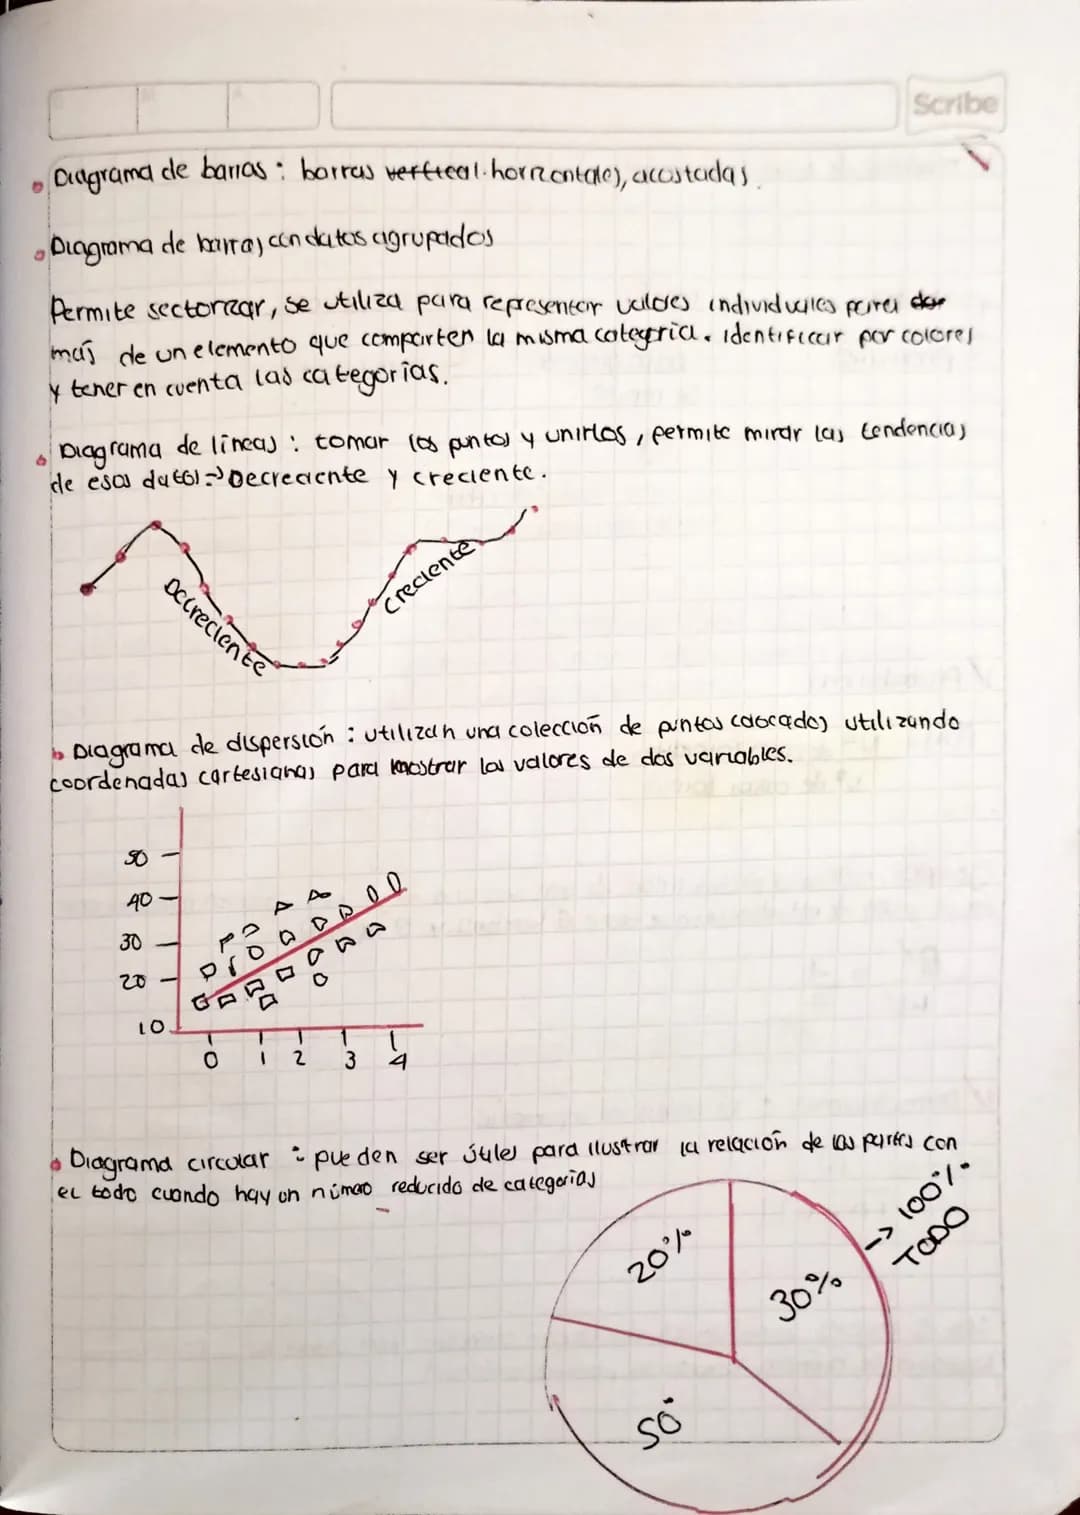 Scribe
Diagrama de barras : barras vertical. horizontales, acostadas.
Diagrama de barras con datos agrupados
Permite sectorizar, se utiliza para representar valores individuales para
más de un elemento que comparten la misma categoria. identificar por colores
y tener en cuenta las categorías.
Diagrama de líneas : tomar los puntos y unirlos, permite mirar las tendencias
de esos datos → Decreciente y creciente.
Decreciente
Creciente
Diagrama de dispersión : utilizan una colección de puntos colocados utilizando
coordenadas cartesianas para mostrar los valores de dos variables.
50
40
30
20
10
0 1 2 3 4
Diagrama circular : pueden ser útiles para ilustrar la relación de las partes con
el todo cuando hay un número reducido de categorías
→ 100%
TODO
20%
30%
50